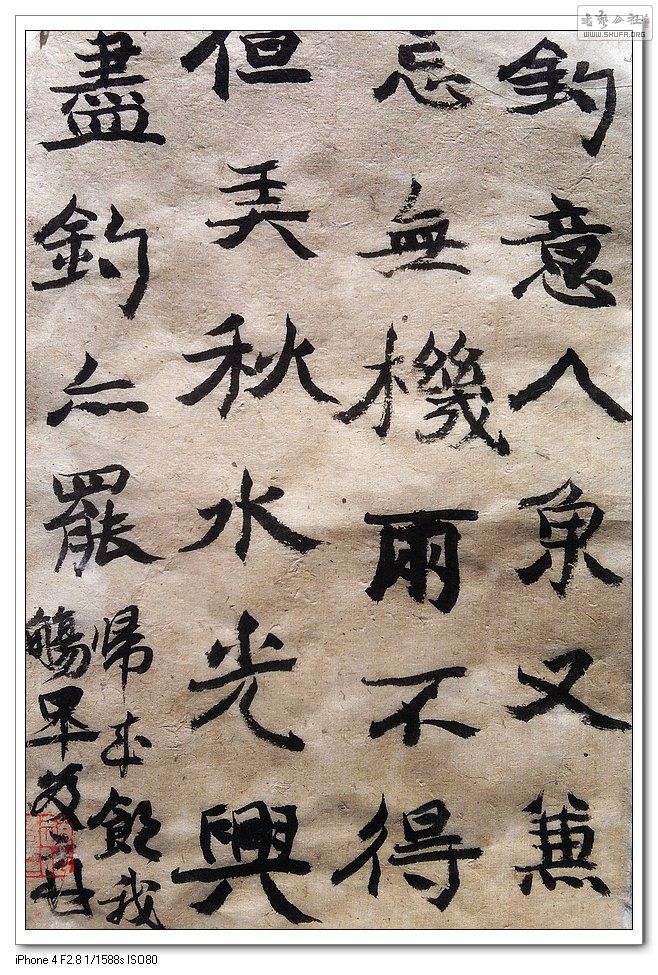 書藝公社
WWW.SHUFA.ORG
釣意人魚又兼
忘無機兩不得
但弄秋水光興
盡釣亦罷
歸來飲我
觴
iPhone 4 F2.8 1/1588s ISO80